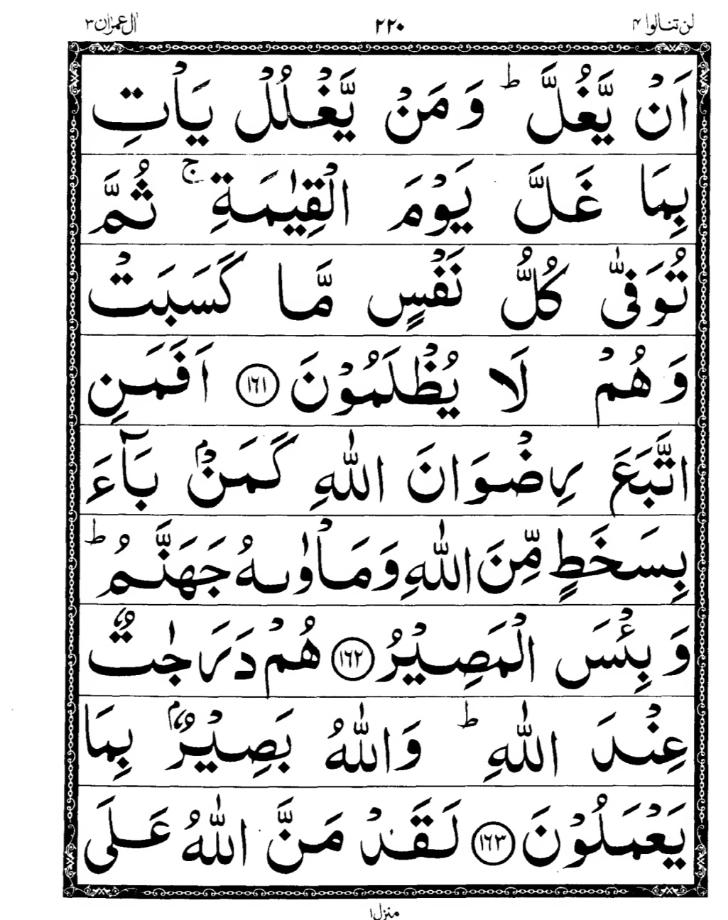 لن تنالوا ۴ ۲۲۰ اٰل عمرٰن ۳
اَنْ یَّغُلَّ ؕ وَ مَنْ یَّغْلُلْ یَاْتِ
بِمَا غَلَّ یَوْمَ الْقِیٰمَةِ ۚ ثُمَّ
تُوَفّٰی كُلُّ نَفْسٍ مَّا كَسَبَتْ
وَ هُمْ لَا یُظْلَمُوْنَ ﴿۱۶۱﴾ اَفَمَنِ
اتَّبَعَ رِضْوَانَ اللّٰهِ كَمَنْۢ بَآءَ
بِسَخَطٍ مِّنَ اللّٰهِ وَ مَاْوٰىهُ جَهَنَّمُ ؕ
وَ بِئْسَ الْمَصِیْرُ ﴿۱۶۲﴾ هُمْ دَرَجٰتٌ
عِنْدَ اللّٰهِ ؕ وَ اللّٰهُ بَصِیْرٌۢ بِمَا
یَعْمَلُوْنَ ﴿۱۶۳﴾ لَقَدْ مَنَّ اللّٰهُ عَلَی
منزل ۱